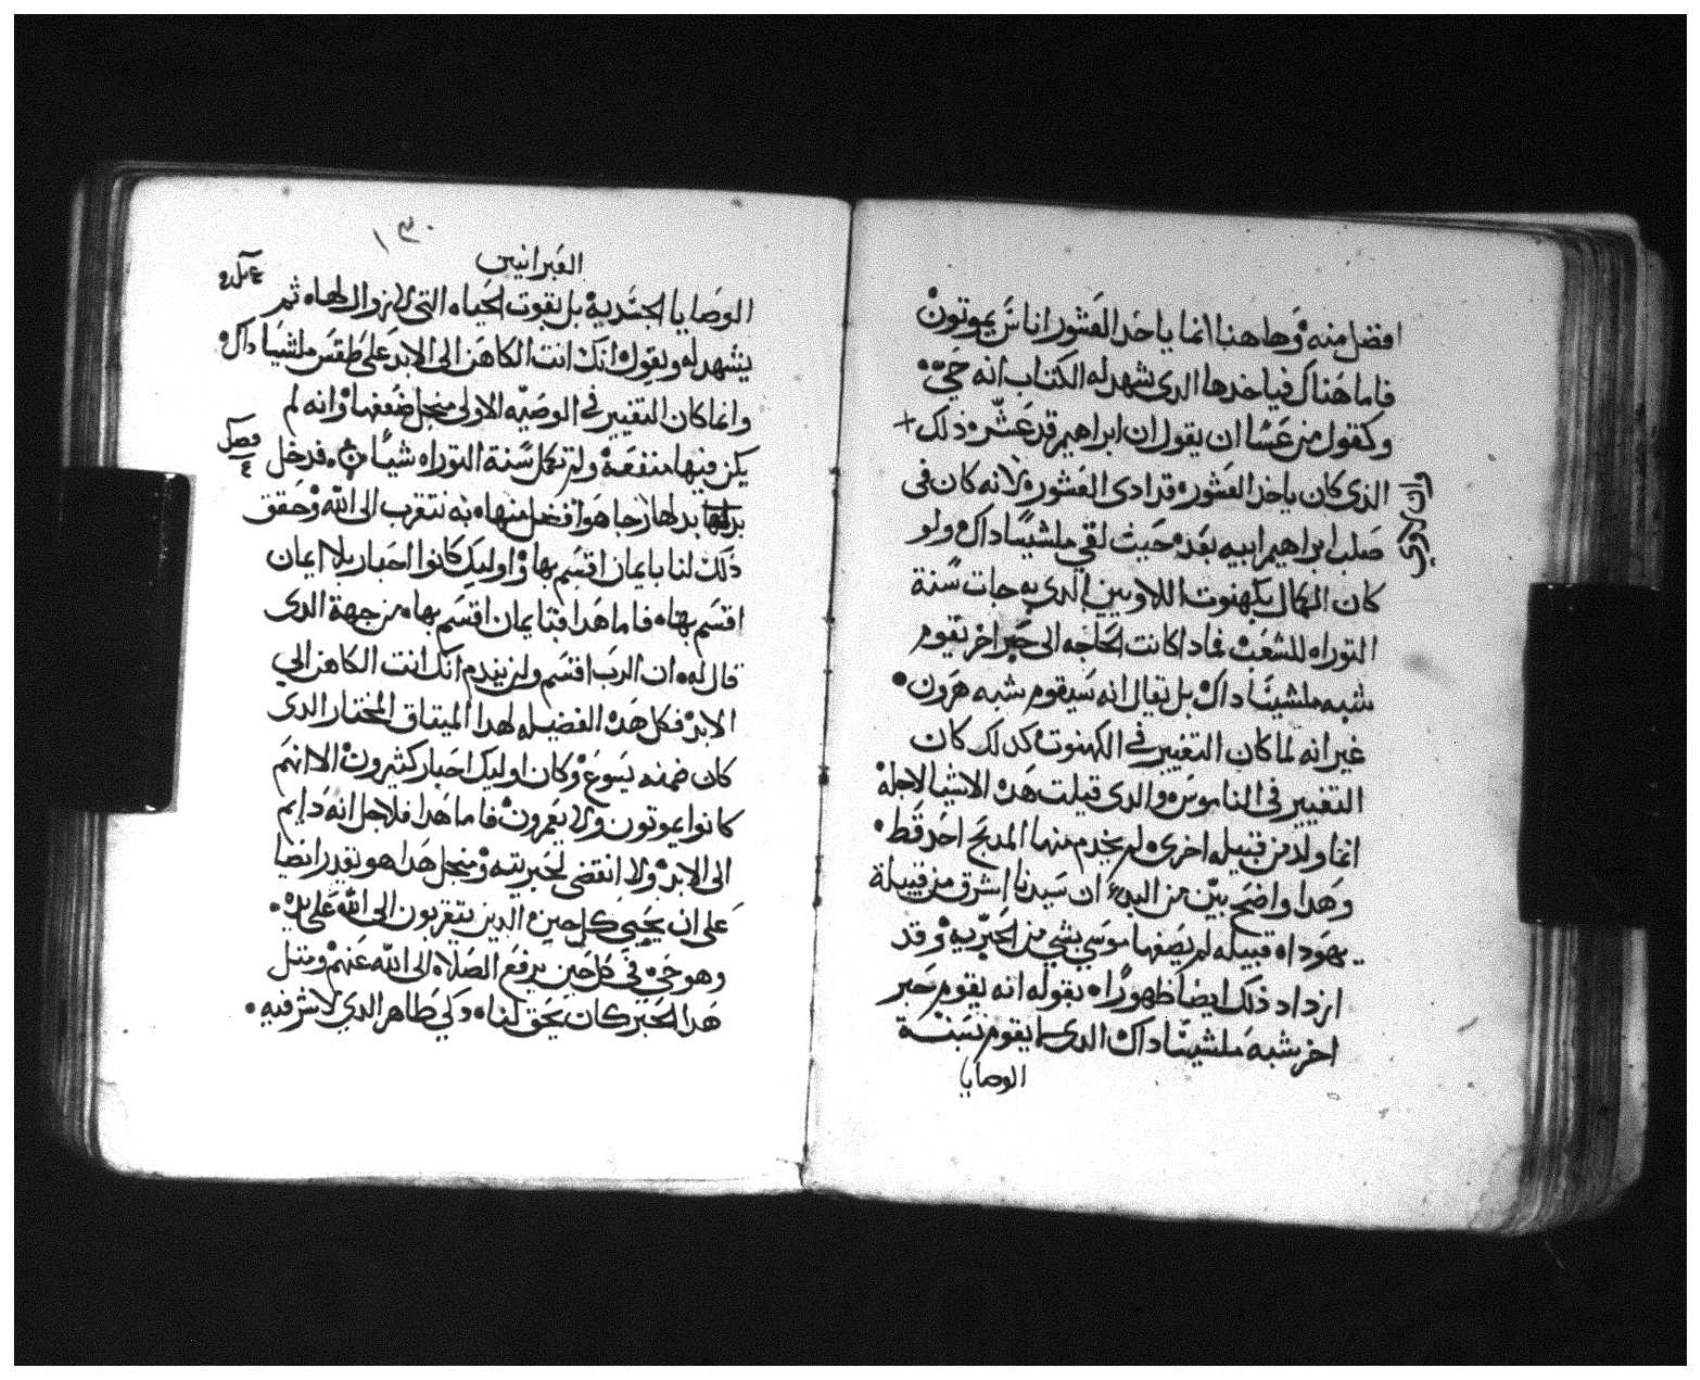 افضل منه وهاهنا انما ياخد العشور اناس يموتون
فاما هناك فياخدها الدى يشهد له الكتاب انه حي
وكقول من عسا ان يقول ان ابراهيم قد عشره ذلك +
الذى كان ياخد العشوره قد ادى العشوره لانه كان فى
صلب ابراهيم ابيه بعد حيت لقي ملشيساداك ولو
كان الكمال بكهنوت اللاويين الدى به جات سنة
التوراه للشعب فمادا كانت الحاجه الى حبر اخر يقوم
شبه ملشيساداك بل يقال انه سيقوم شبه هرون
غير انه لما كان التغيير فى الكهنوت كدلك كان
التغيير فى الناموس والدى قيلت هده الاشيا لاجله
انما ولد من قبيله اخرى لم يخدم منها المدبح احد قط
وهدا واضح بين من البدء ان سيدنا اشرق من قبيلة
يهوداه قبيله لم يصفها موسي بشي من الحبريه وقد
ازداد ذلك ايضا ظهورًا بقوله انه يقوم حبر
اخر شبه ملشيساداك الدى لم يقوم بسنة
الوصايا
١٣٠
العبرانيين
الوصايا الجسديه بل بقوت الحياه التى لا زوال لهاه ثم
يشهد له ويقول انك انت الكاهن الى الابد على طقس ملشيساداك
وانما كان التغيير فى الوصيه الاولى منجل ضعفها وانه لم
فصل ٤
يكن فيها منفعه ولم تكمل سنة التوراه شيًا فدخل
بدلها رجا هو افضل منها به نتقرب الى الله وحقق
ذلك لنا بايمان اقسم بها واوليك كانوا احبار بلا ايمان
اقسم بها فاما هدا فبايمان اقسم بهاه من جهة الدى
قال له ان الرب اقسم ولن يندم انك انت الكاهن الي
الابد فكل هده الفضيله لهدا الميتاق المختار الدى
كان ضمنه يسوع وكان اوليك احبار كثيرون الا انهم
كانوا يموتون ولا يعمرون فاما هدا فلاجل انه دايم
الى الابد ولا انقضى لحبريته ومنجل هدا هو يقدر ايضا
على ان يحيي كل حين الدين يتقربون الى الله على يده
وهو حي في كل حين يرفع الصلاه الى الله عنهم ومتل
هدا الحبر كان يحق لنا زكي طاهر الدي لا شر فيه